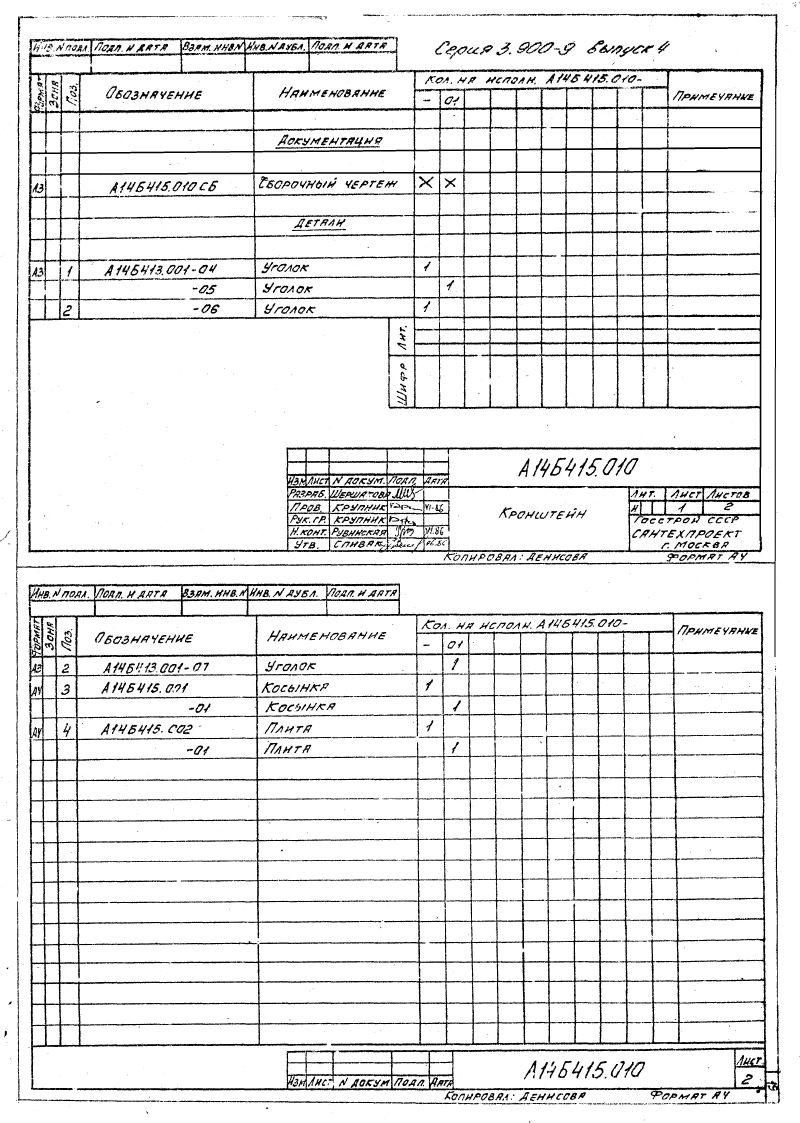 Серия 3.900-9 Выпуск 4
Инв. N подл. Подп. и дата Взам. инв. N Инв. N дубл. Подп. и дата
Формат Зона Поз. Обозначение Наименование Кол. на исполн. А14Б415.010- Примечание
- 01
Документация
А3 А14Б415.010 СБ Сборочный чертеж X X
Детали
А3 1 А14Б413.001-04 Уголок 1
-05 Уголок 1
2 -06 Уголок 1
Лит.
Шифр
А14Б415.010
Изм Лист N докум. Подп. Дата
Разраб. Шершатова
Пров. Крупник VI-86
Рук. гр. Крупник
Н. конт. Рубинская VI.86
Утв. Спивак
Кронштейн
Лит. Лист Листов
И 1 2
Госстрой СССР
Сантехпроект
г. Москва
Копировал: Денисова Формат А4
Инв. N подл. Подп. и дата Взам. инв. N Инв. N дубл. Подп. и дата
Формат Зона Поз. Обозначение Наименование Кол. на исполн. А14Б415.010- Примечание
- 01
А3 2 А14Б413.001-07 Уголок 1
А4 3 А14Б415.001 Косынка 1
-01 Косынка 1
А4 4 А14Б415.002 Плита 1
-01 Плита 1
Изм Лист N докум Подп. Дата
А14Б415.010
Лист
2
Копировал: Денисова Формат А4